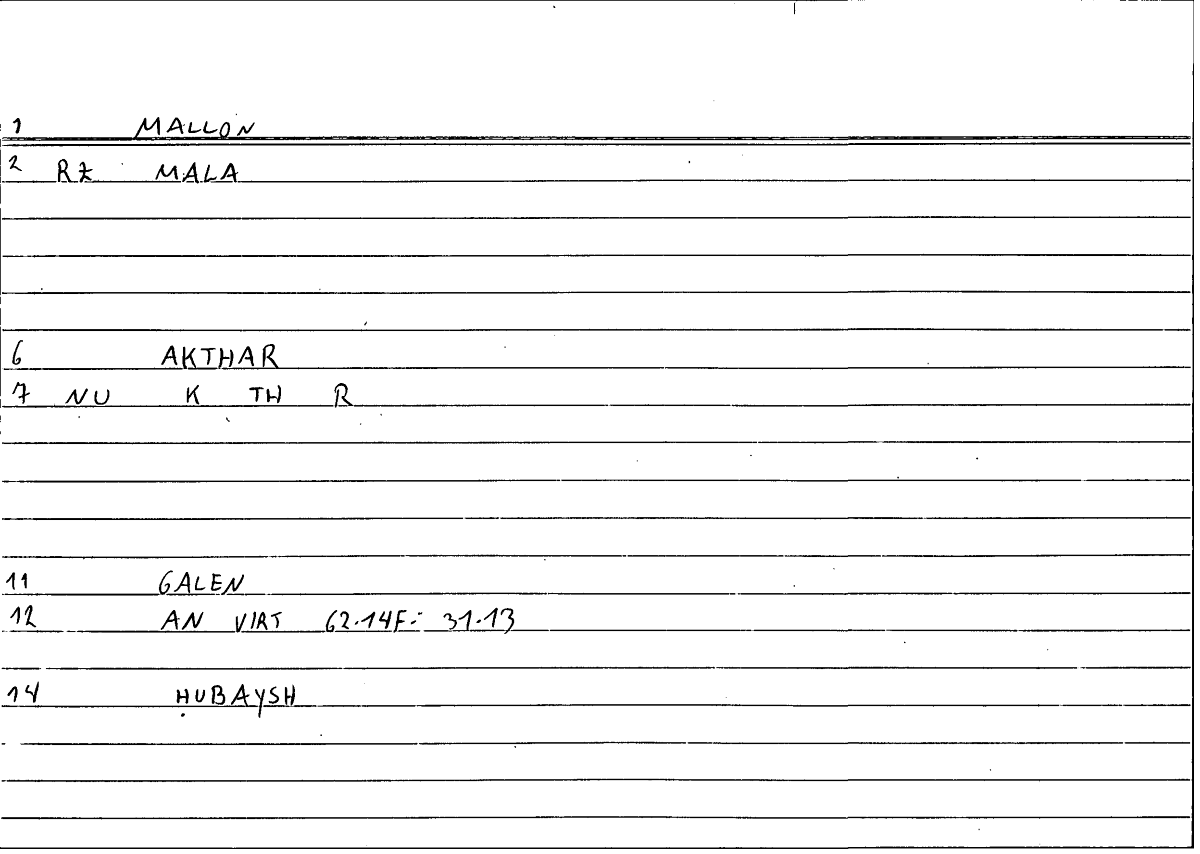 1 MALLON
2 RZ MALA
6 AKTHAR
7 NU K TH R
11 GALEN
12 AN VIRT 62.14F.: 31.13
14 ḤUBAYSH